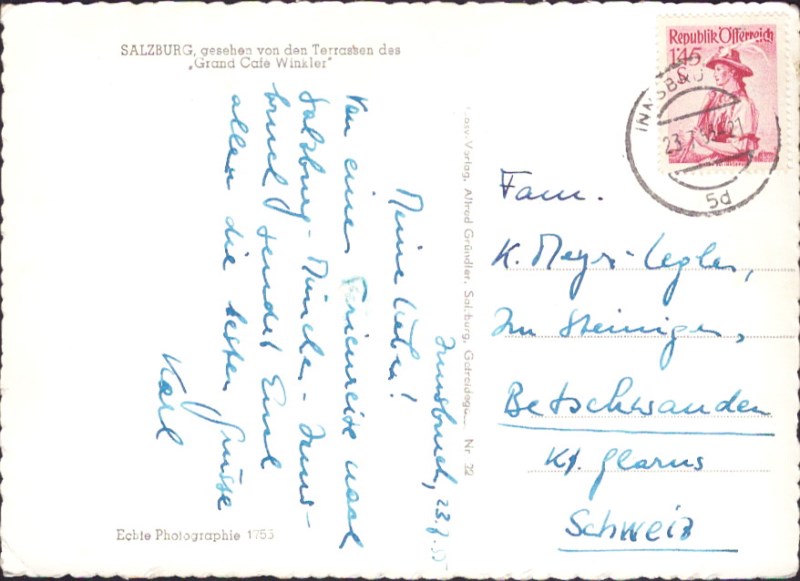 SALZBURG, gesehen von den Terrassen des
„Grand Cafe Winkler"
Innsbruck, 23.7.55
Meine Lieben!
Von einer Ferienreise nach
Salzburg - München - Inns-
bruck sendet Euch
allen die besten Grüsse
Karl
Echte Photographie 1753
-Verlag, Alfred Gründler, Salzburg, Getreidegasse Nr. 22
Republik Österreich
1.45
S
INNSBRU
23.7.
5d
Fam.
K. Meyr-Legler,
Im Steinigen,
Betschwanden
Kt. Glarus
Schweiz